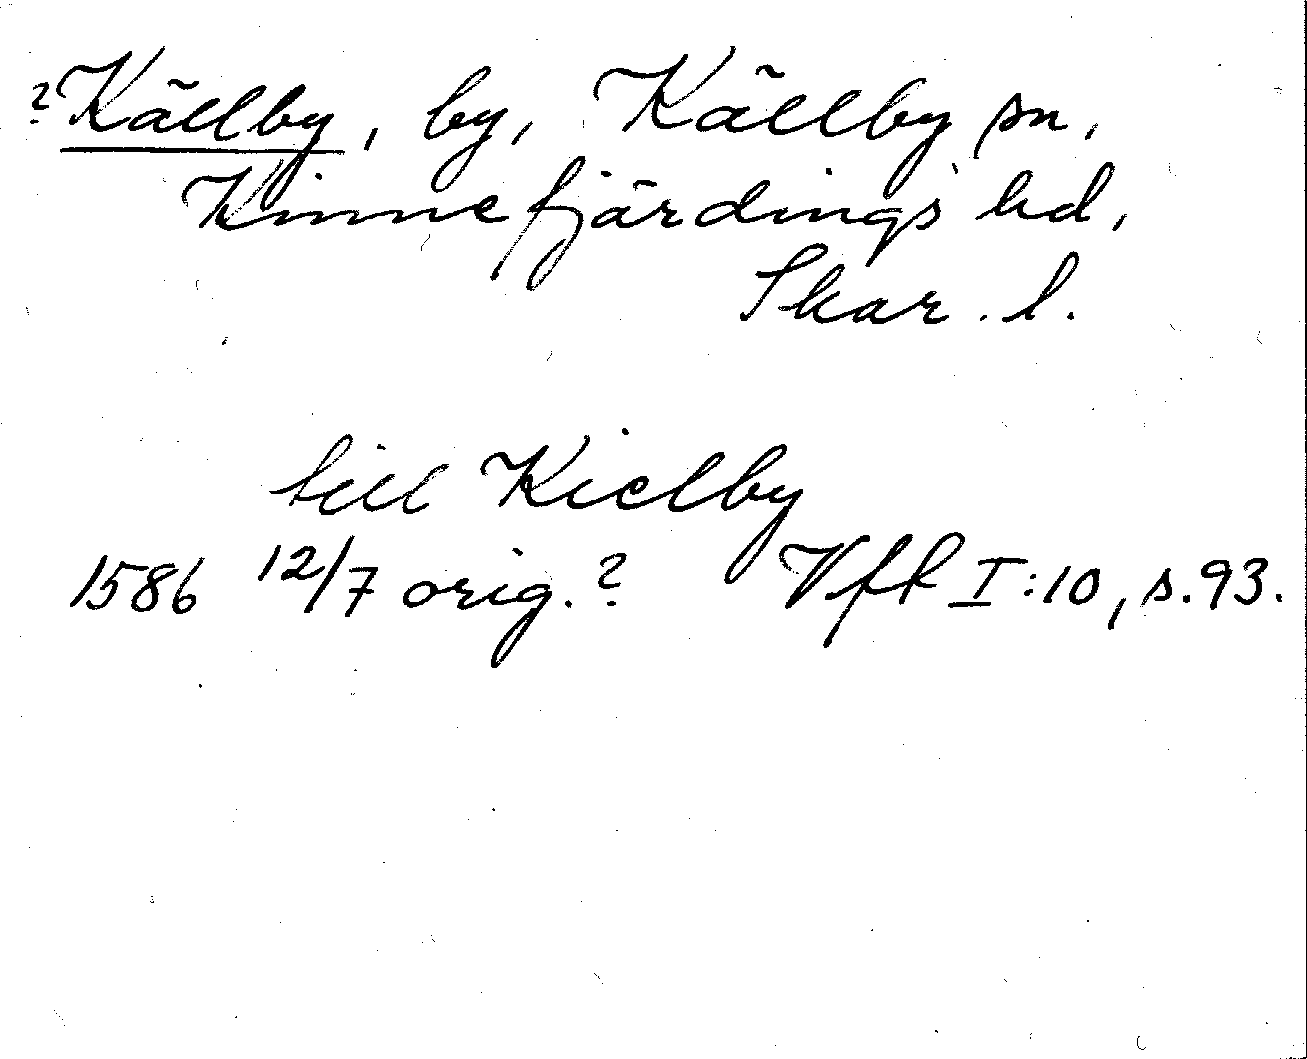 ? Källby, by, Källby sn,
Kinnefjärdings hd,
Skar. l.
till Kielby
1586 12/7 orig.? Vfl I:10, s. 93.